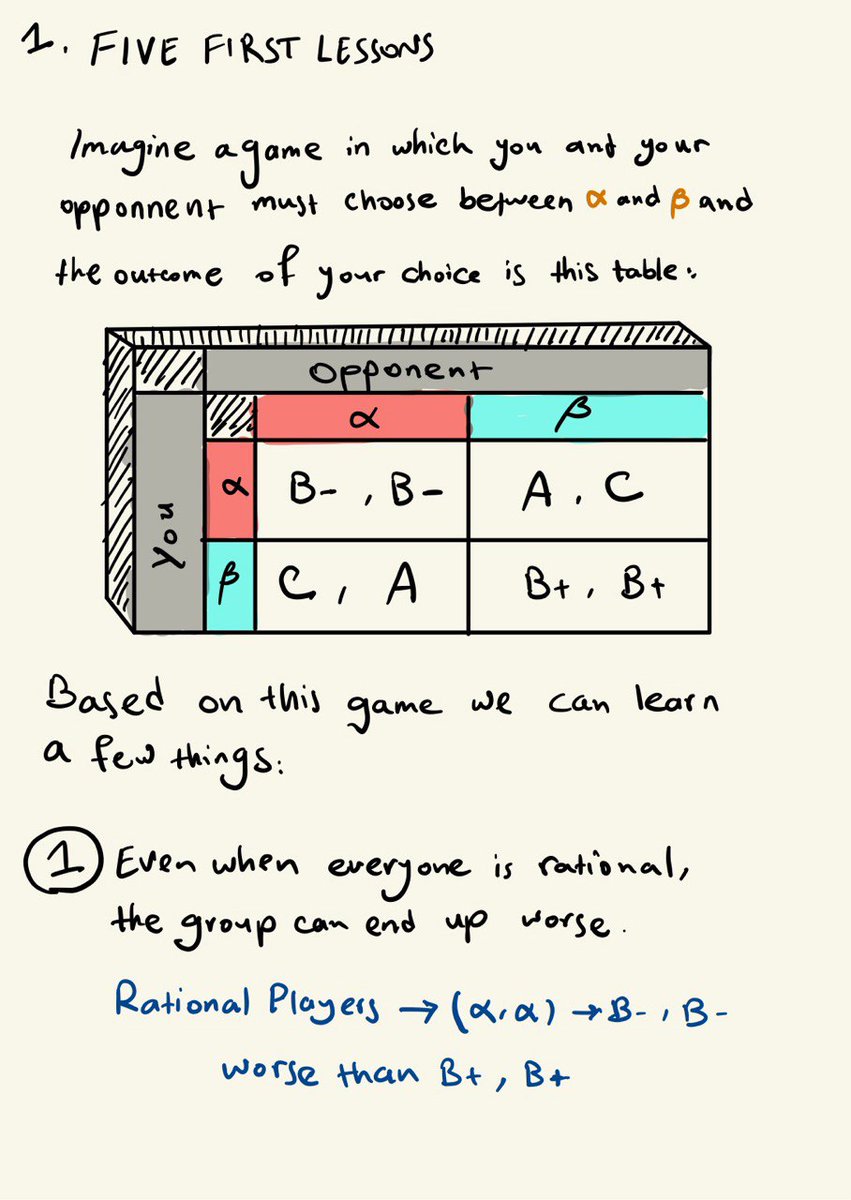 1. FIVE FIRST LESSONS
Imagine a game in which you and your
opponnent must choose between α and β and
the outcome of your choice is this table:
opponent
α β
you
α B- , B- A , C
β C , A B+ , B+
Based on this game we can learn
a few things:
1 Even when everyone is rational,
the group can end up worse.
Rational Players → (α, α) → B- , B-
worse than B+ , B+